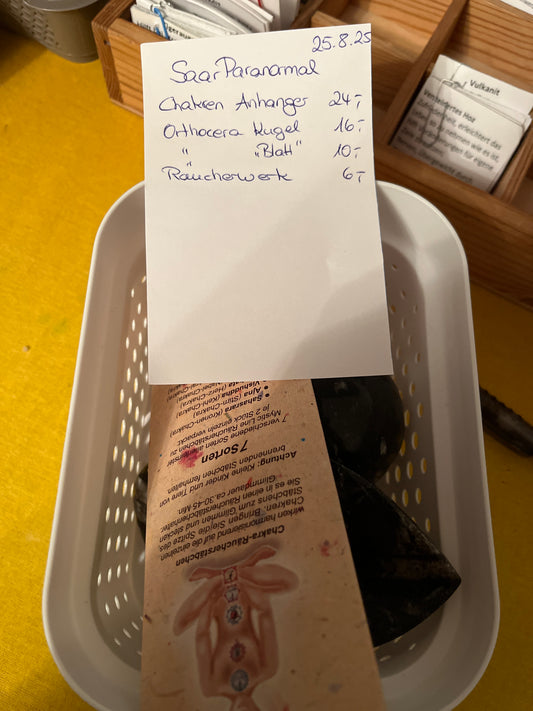 25.8.25
SaarParanormal
Chakren Anhänger 24,-
Orthocera Kugel 16,-
" „Blatt" 10,-
"
Räucherwerk 6,-
Vulkanit
Versteinertes Holz
erleichtert das
zu nehmen wie es ist.
für eigene
Chakra-Räucherstäbchen
wirken harmonisierend auf die einzelnen
Chakren. Bringen Sie die Spitze des
Stäbchens zum Glimmen und stecken
Sie es in einen Räucherstäbchenhalter.
Glimmdauer ca.30-45 Min.
Achtung: Kleine Kinder und Tiere von
brennenden Stäbchen fernhalten.
7 Sorten
7 verschiedene Sorten Räucherstäbchen
Mystic Line
je 2 Stück einzeln verpackt.
• Sahasrara (Kronen-Chakra)
• Ajna (Stirn-Chakra)
Vishuddha (Kehl-Chakra)
(Herz-Chakra)